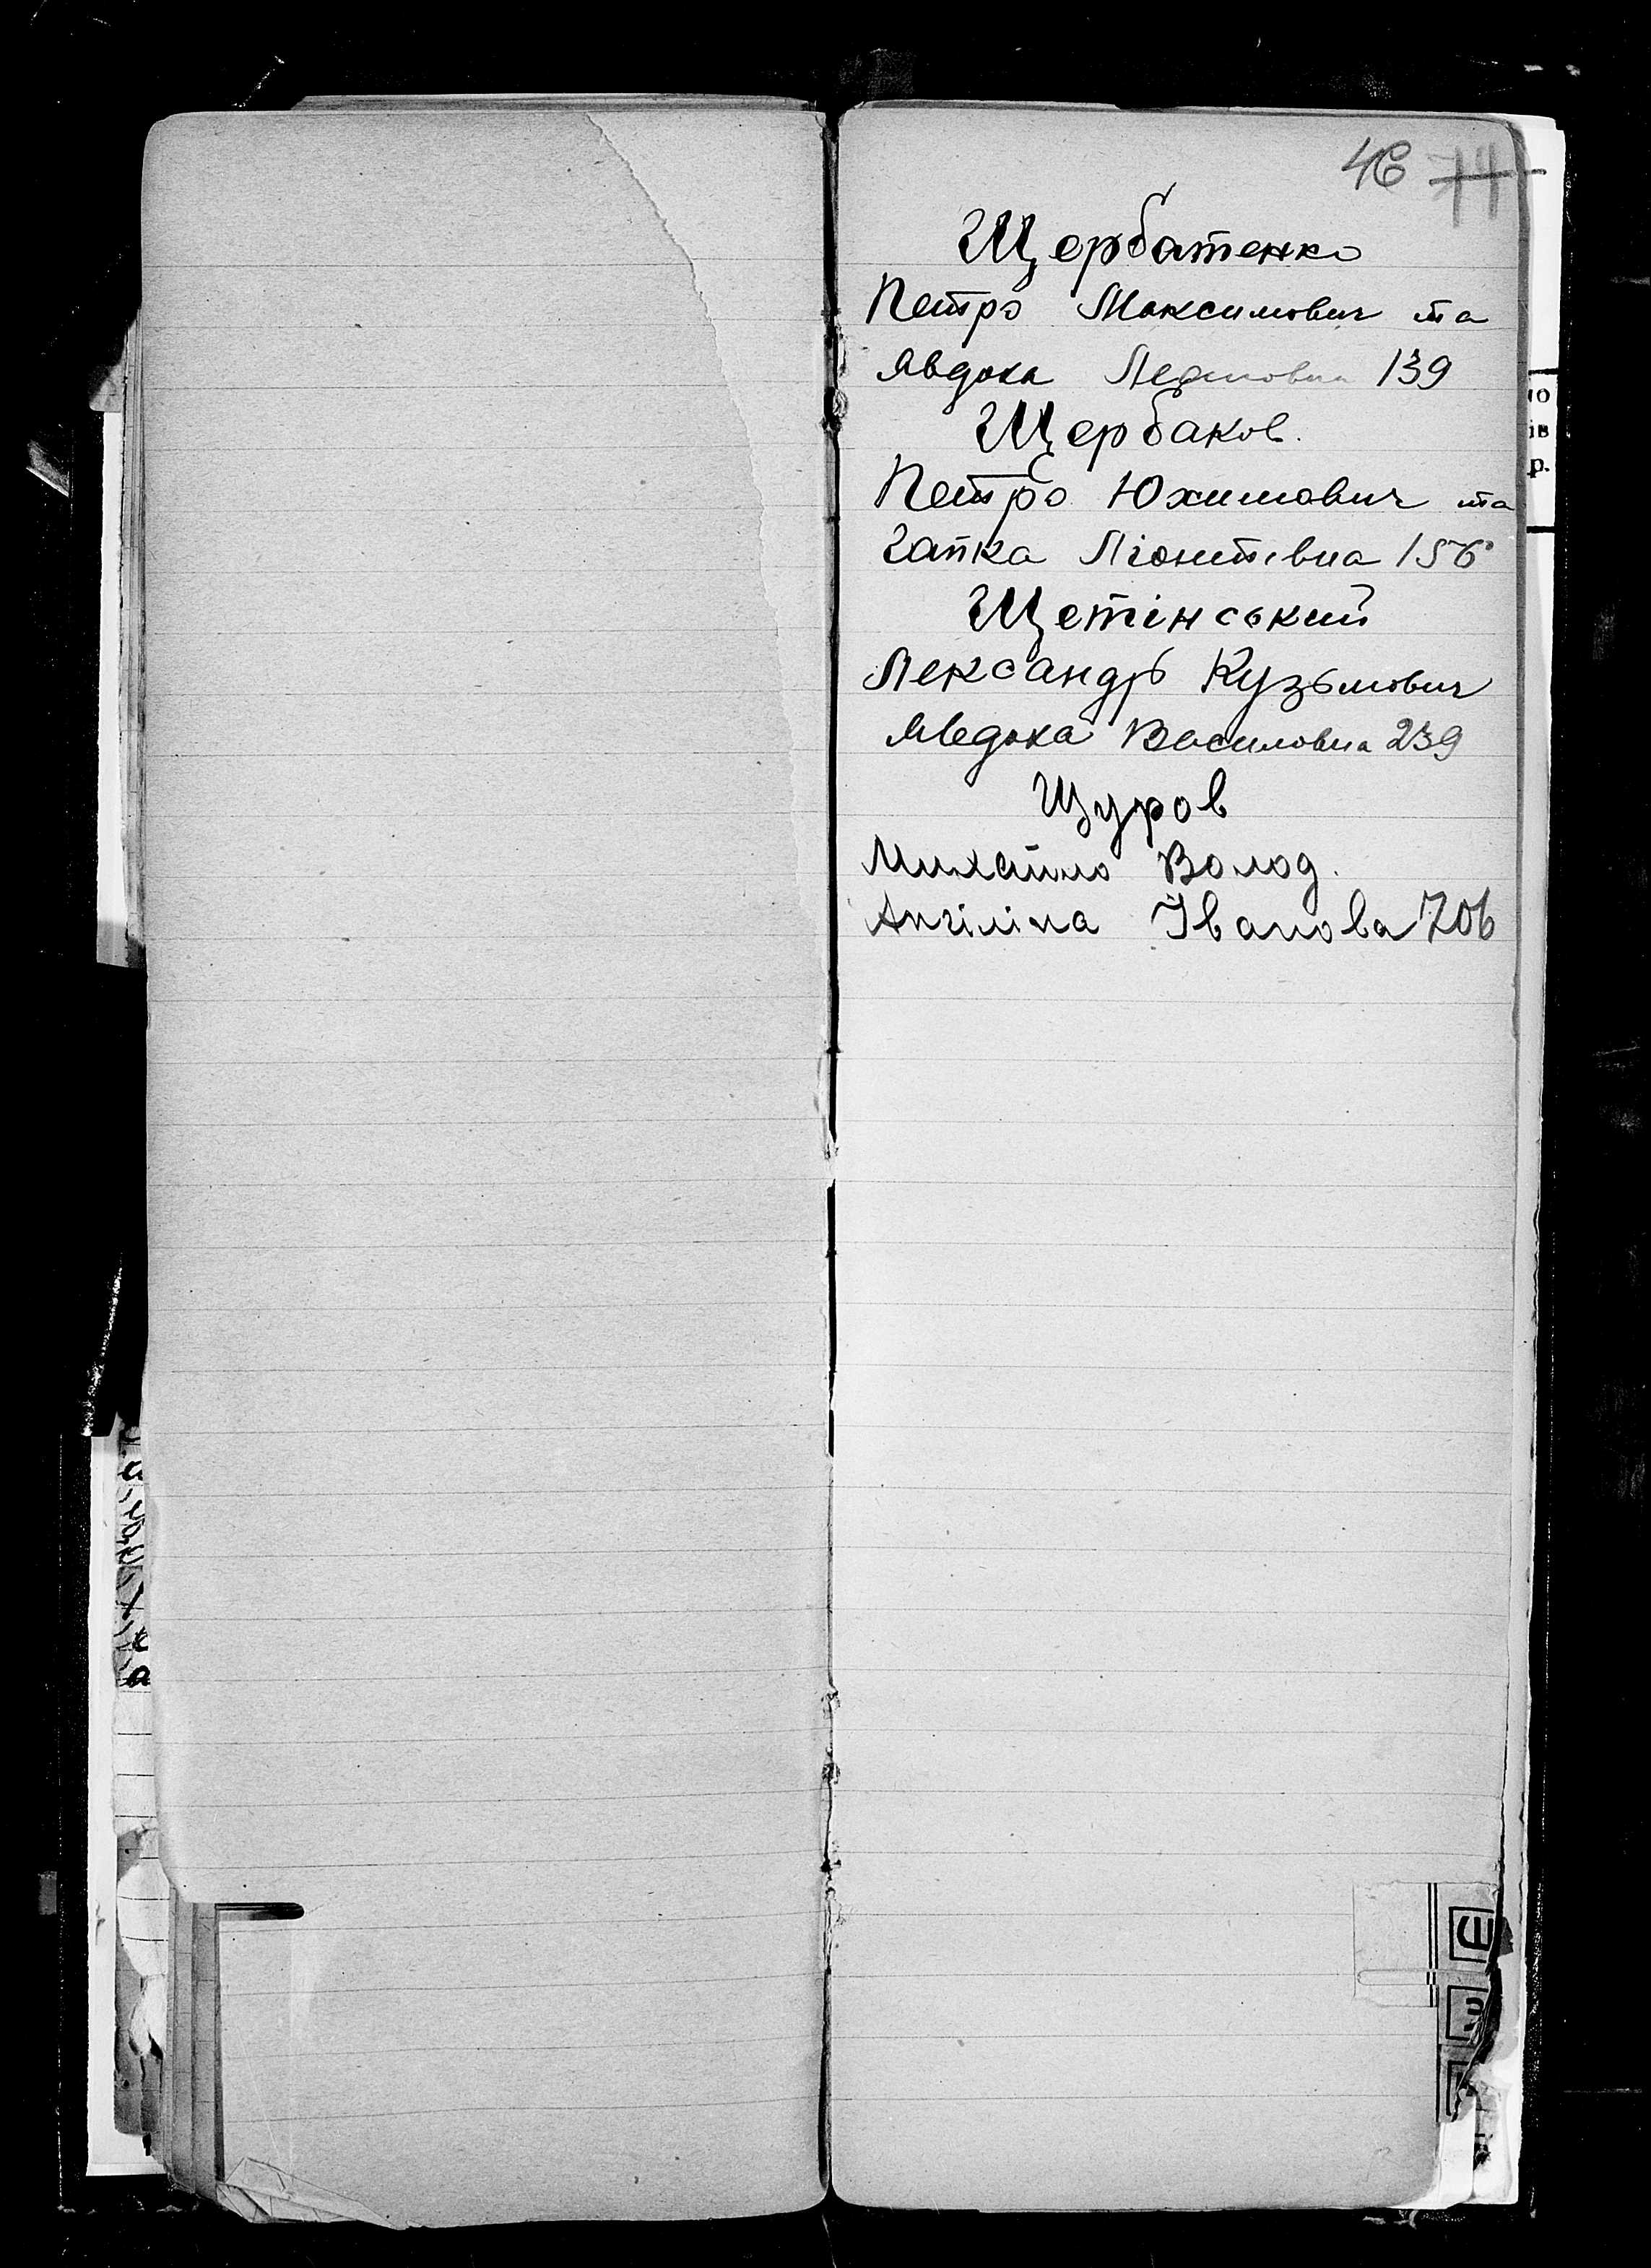 46 71
Щербатенко
Петро Максимович та
Явдоха 139
Щербаков.
Петро Юхимович та
Гапка Ліонтівна 156
Щетінський
Лександр Кузьмович
Явдоха Василовна 239
Щуров
Михайло Волод.
Ангіліна Іванова 706
ю
ів
р.
Ш